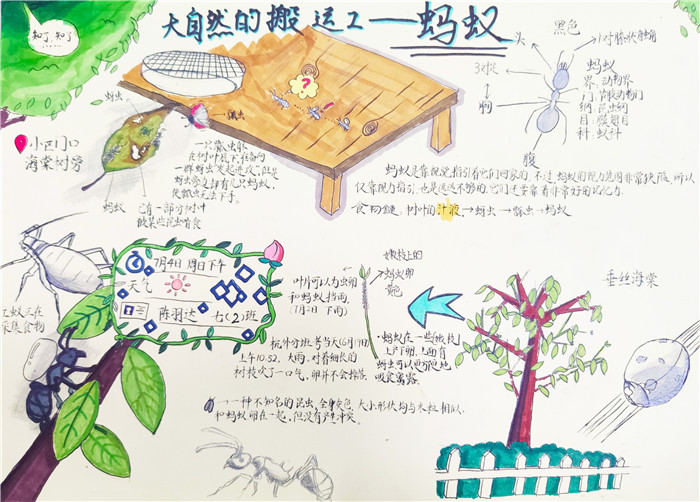 知了,知了
大自然的搬运工——蚂蚁
黑色
头
1对膝状触角
3对
胸
腹
蚂蚁
界:动物界
门:节肢动物门
纲:昆虫纲
目:膜翅目
科:蚁科
蚜虫
瓢虫
小区门口
海棠树旁
一只瓢虫
在树叶底下,准备向
一群蚜虫发起进攻,但是
蚜虫旁边却有几只蚂蚁,
使瓢虫无法下手。
蚂蚁
已有一部分树叶
被某些昆虫啃食
蚂蚁是靠视觉指引着它们回家的,不过,蚂蚁的视力范围非常狭隘,所以
仅靠视力指引,也是远远不够的,它们还要靠着非常好的记忆力。
食物链:树叶的汁液→蚜虫→瓢虫→蚂蚁
7月4日 周日下午
天气
陈羽达 七(2)班
工蚁正在
采集食物
叶片可以为虫卵
和蚂蚁挡雨,
(7月1日 下雨)
嫩枝上的
蚂蚁卵
黄色
垂丝海棠
杭外分班考当天(6月19日)
上午10:32,大雨,对着细长的
树枝吹了一口气,卵并不会掉落
蚂蚁在一些嫩枝
上产下卵,上面有
蚜虫可以更方便地
吸食蜜露。
一种不知名的昆虫,全身灰色,大小形状均与米粒相似,
和蚂蚁卵在一起,但没有产生冲突。